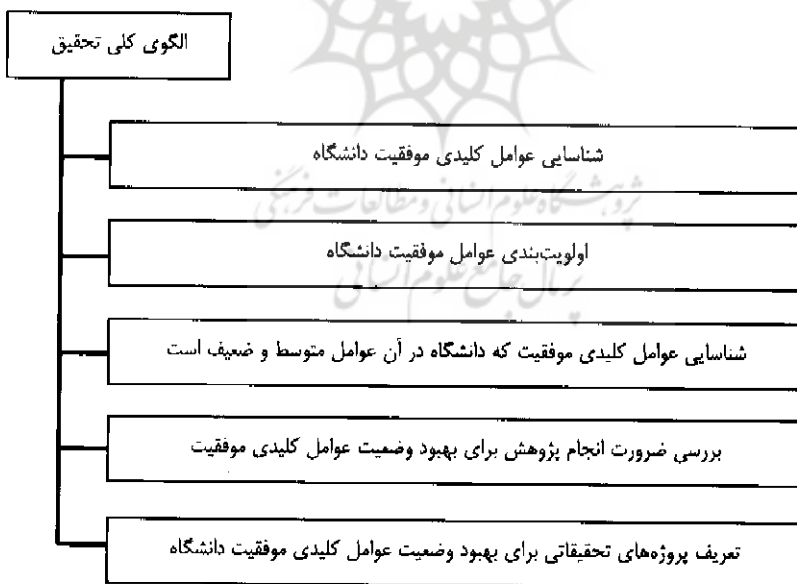 الگوی کلی تحقیق
شناسایی عوامل کلیدی موفقیت دانشگاه
پژوهشگاه علوم انسانی و مطالعات فرهنگی
اولویت‌بندی عوامل موفقیت دانشگاه
پرتال جامع علوم انسانی
شناسایی عوامل کلیدی موفقیت که دانشگاه در آن عوامل متوسط و ضعیف است
بررسی ضرورت انجام پژوهش برای بهبود وضعیت عوامل کلیدی موفقیت
تعریف پروژه‌های تحقیقاتی برای بهبود وضعیت عوامل کلیدی موفقیت دانشگاه